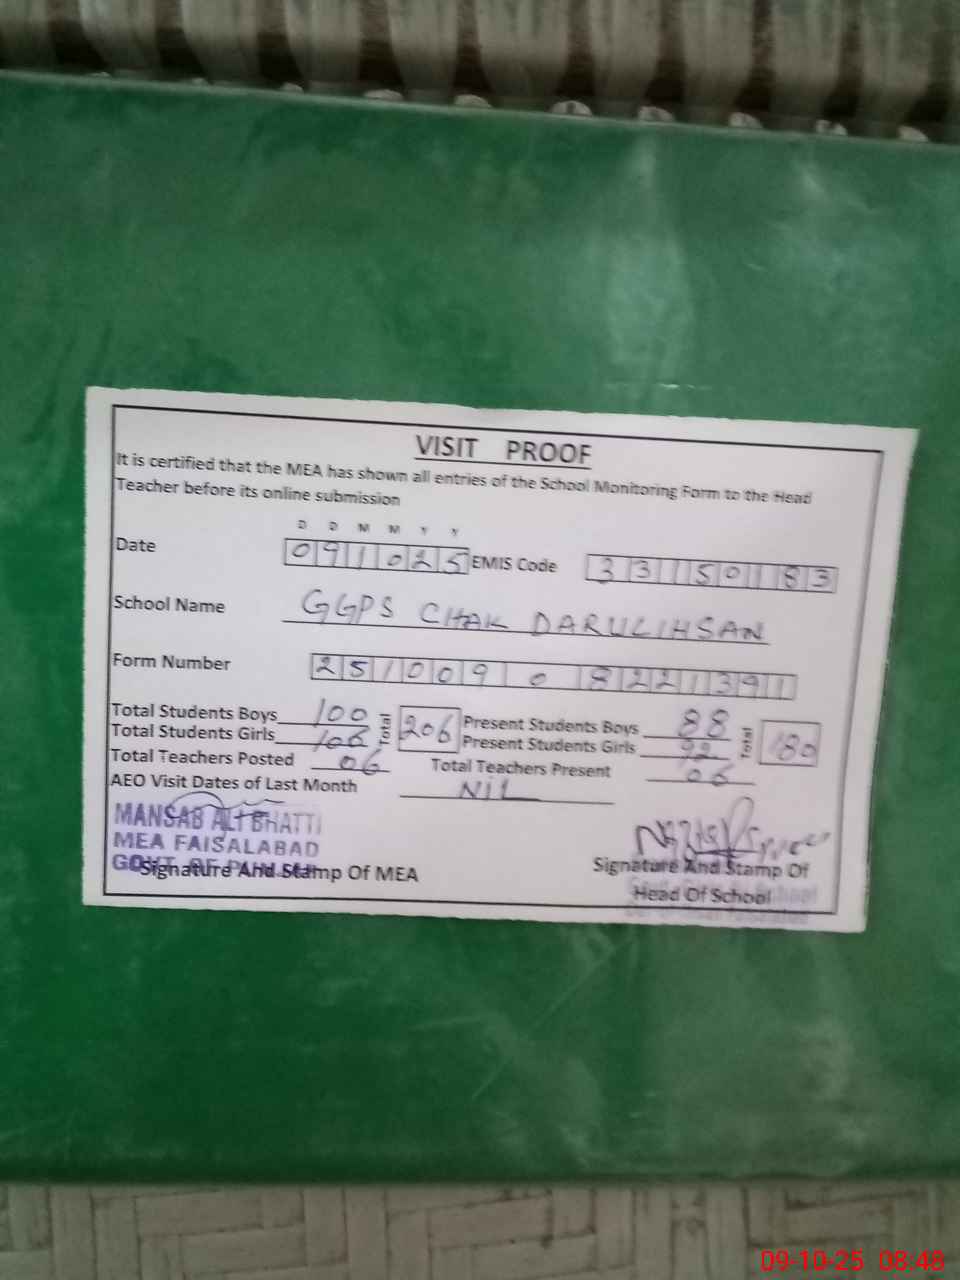 VISIT PROOF
It is certified that the MEA has shown all entries of the School Monitoring Form to the Head
Teacher before its online submission
D D M M Y Y
Date 091025 EMIS Code 33150183
School Name GGPS CHAK DARULIHSAN
Form Number 251009 0 8221391
Total Students Boys 100 Total 206 Present Students Boys 88 Total 180
Total Students Girls 106 Present Students Girls 92
Total Teachers Posted 06 Total Teachers Present 06
AEO Visit Dates of Last Month Nil
MANSAB ALI BHATTI
MEA FAISALABAD
GOVT. OF PUNJAB
Signature And Stamp Of MEA
Signature And Stamp Of
Head Of School
09-10-25 08:48